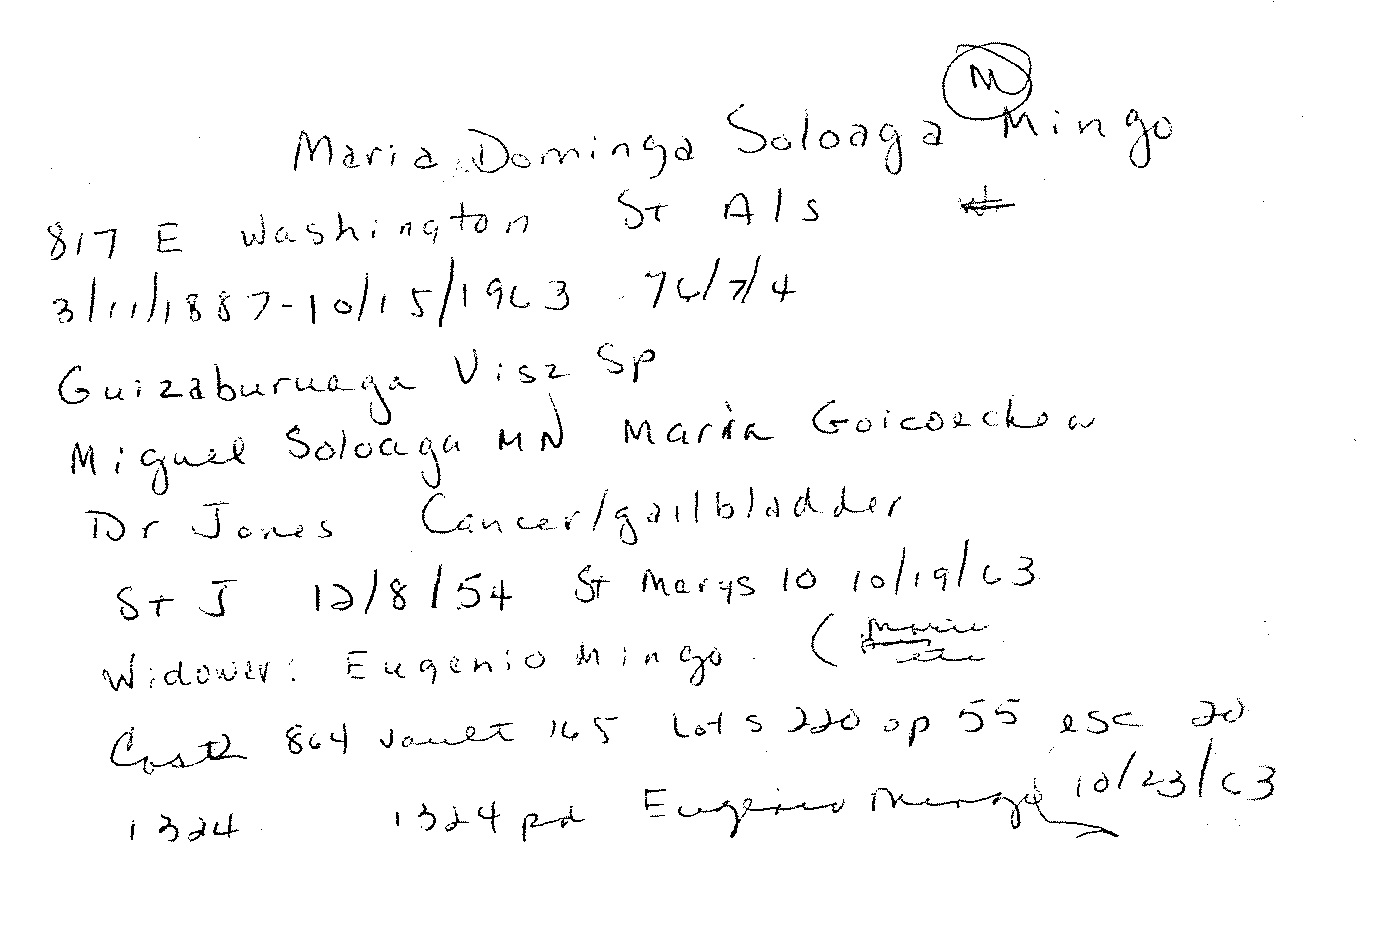 M
Maria Dominga Soloaga Mingo
817 E Washington St A/s
3/11/1887-10/15/1963 76/7/4
Guizaburuaga Visz Sp
Miguel Soloaga MN Maria Goicoechea
Dr Jones Cancer/gallbladder
St J 12/8/54 St Marys 10 10/19/63
Widower: Eugenio Mingo (
864 vault 165 Lots 220 op 55 esc 20
1324 1324 pd Eugenio Mingo 10/23/63